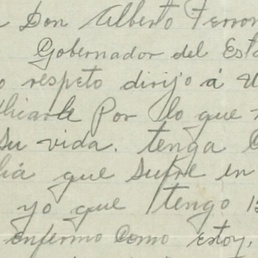 Don Alberto Terron
Gobernador del Est
respeto dirijo á U
plicarle Por lo que
su vida. tenga C
que sufre en
yo que tengo 15
enfermo como estoy,